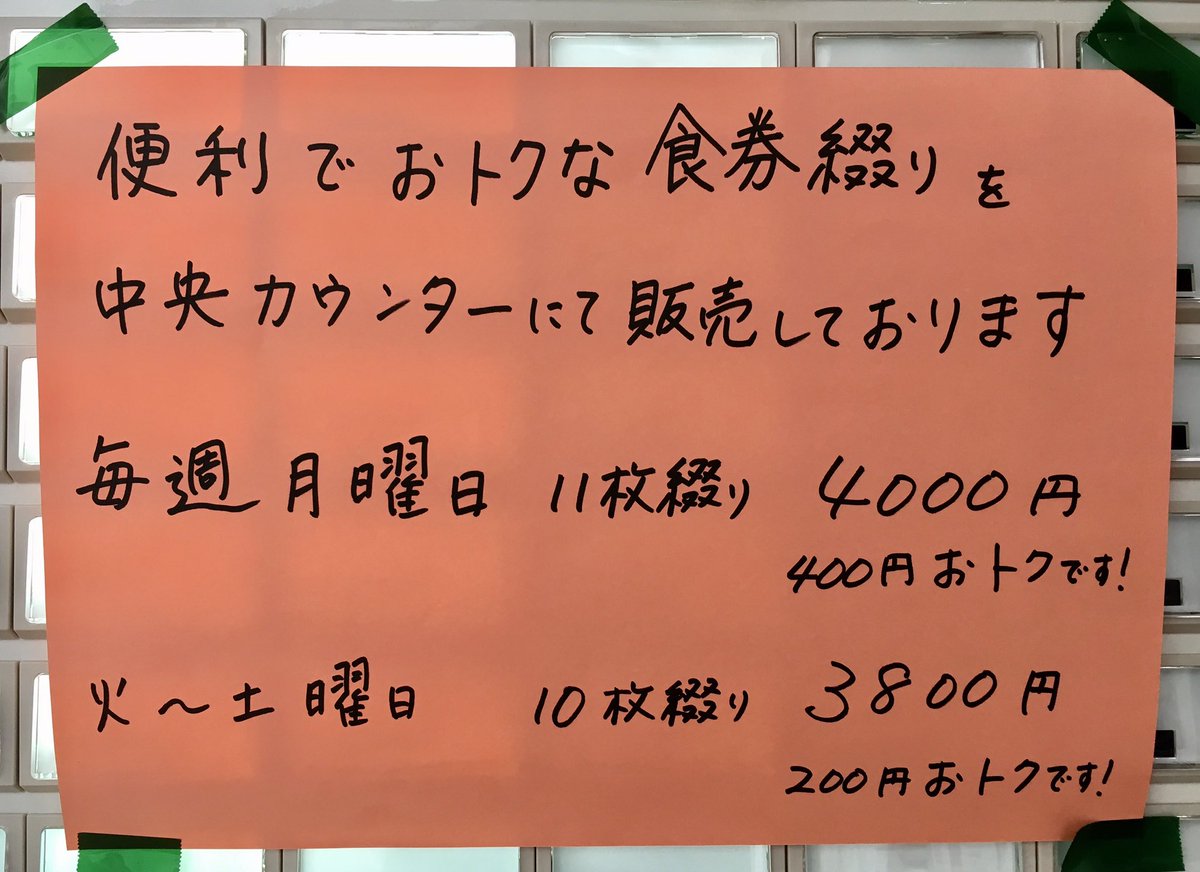 便利でおトクな食券綴りを
中央カウンターにて販売しております
毎週月曜日 11枚綴り 4000円
400円おトクです!
火～土曜日 10枚綴り 3800円
200円おトクです!